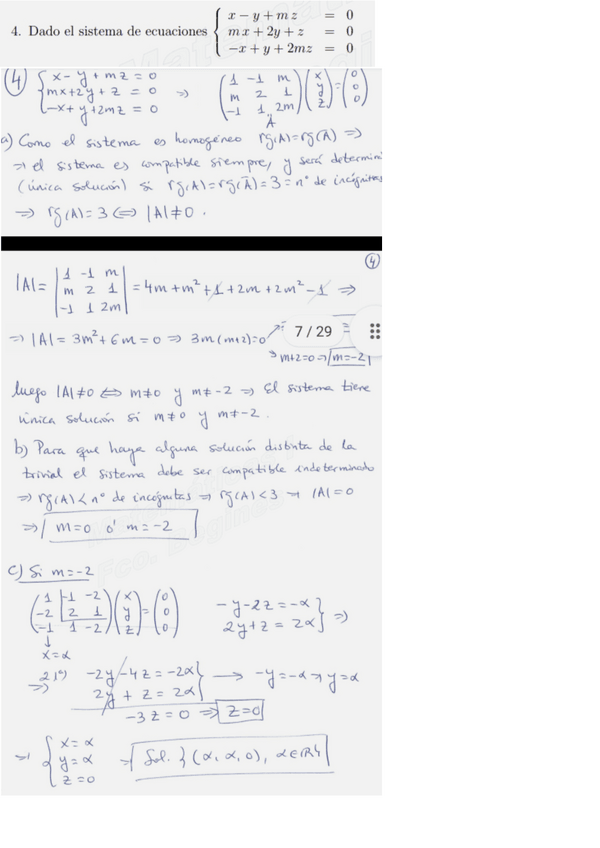 4. Dado el sistema de ecuaciones { x − y + m z = 0
m x + 2y + z = 0
−x + y + 2mz = 0
④ { x - y + m z = 0
mx + 2y + z = 0
-x + y + 2mz = 0
=> ( 1 -1 m
m 2 1
-1 1 2m ) ( x
y
z ) = ( 0
0
0 )
A
a) Como el sistema es homogéneo rg(A) = rg(Ā) =>
=> el sistema es compatible siempre, y será determin
(única solución) si rg(A) = rg(Ā) = 3 = nº de incógnitas
=> rg(A) = 3 <=> |A| ≠ 0.
④
|A| = | 1 -1 m
m 2 1
-1 1 2m | = 4m + m² + 1 + 2m + 2m² - 1 =>
=> |A| = 3m² + 6m = 0 => 3m(m+2) = 0
7 / 29
m+2=0 => m=-2
luego |A| ≠ 0 <=> m≠0 y m≠-2 => El sistema tiene
única solución si m≠0 y m≠-2.
b) Para que haya alguna solución distinta de la
trivial el sistema debe ser compatible indeterminado
=> rg(A) < nº de incógnitas => rg(A) < 3 => |A| = 0
=> m=0 ó m=-2
c) Si m=-2
( 1 -1 -2
-2 2 1
-1 1 -2 ) ( x
y
z ) = ( 0
0
0 )
-y-2z = -α
2y+z = 2α } =>
↓
x=α
-2y - 4z = -2α
2y + z = 2α } → -y=-α → y=α
-3z = 0 => z=0
=> { x=α
y=α
z=0
=> Sol. {(α, α, 0), α∈ℝ}